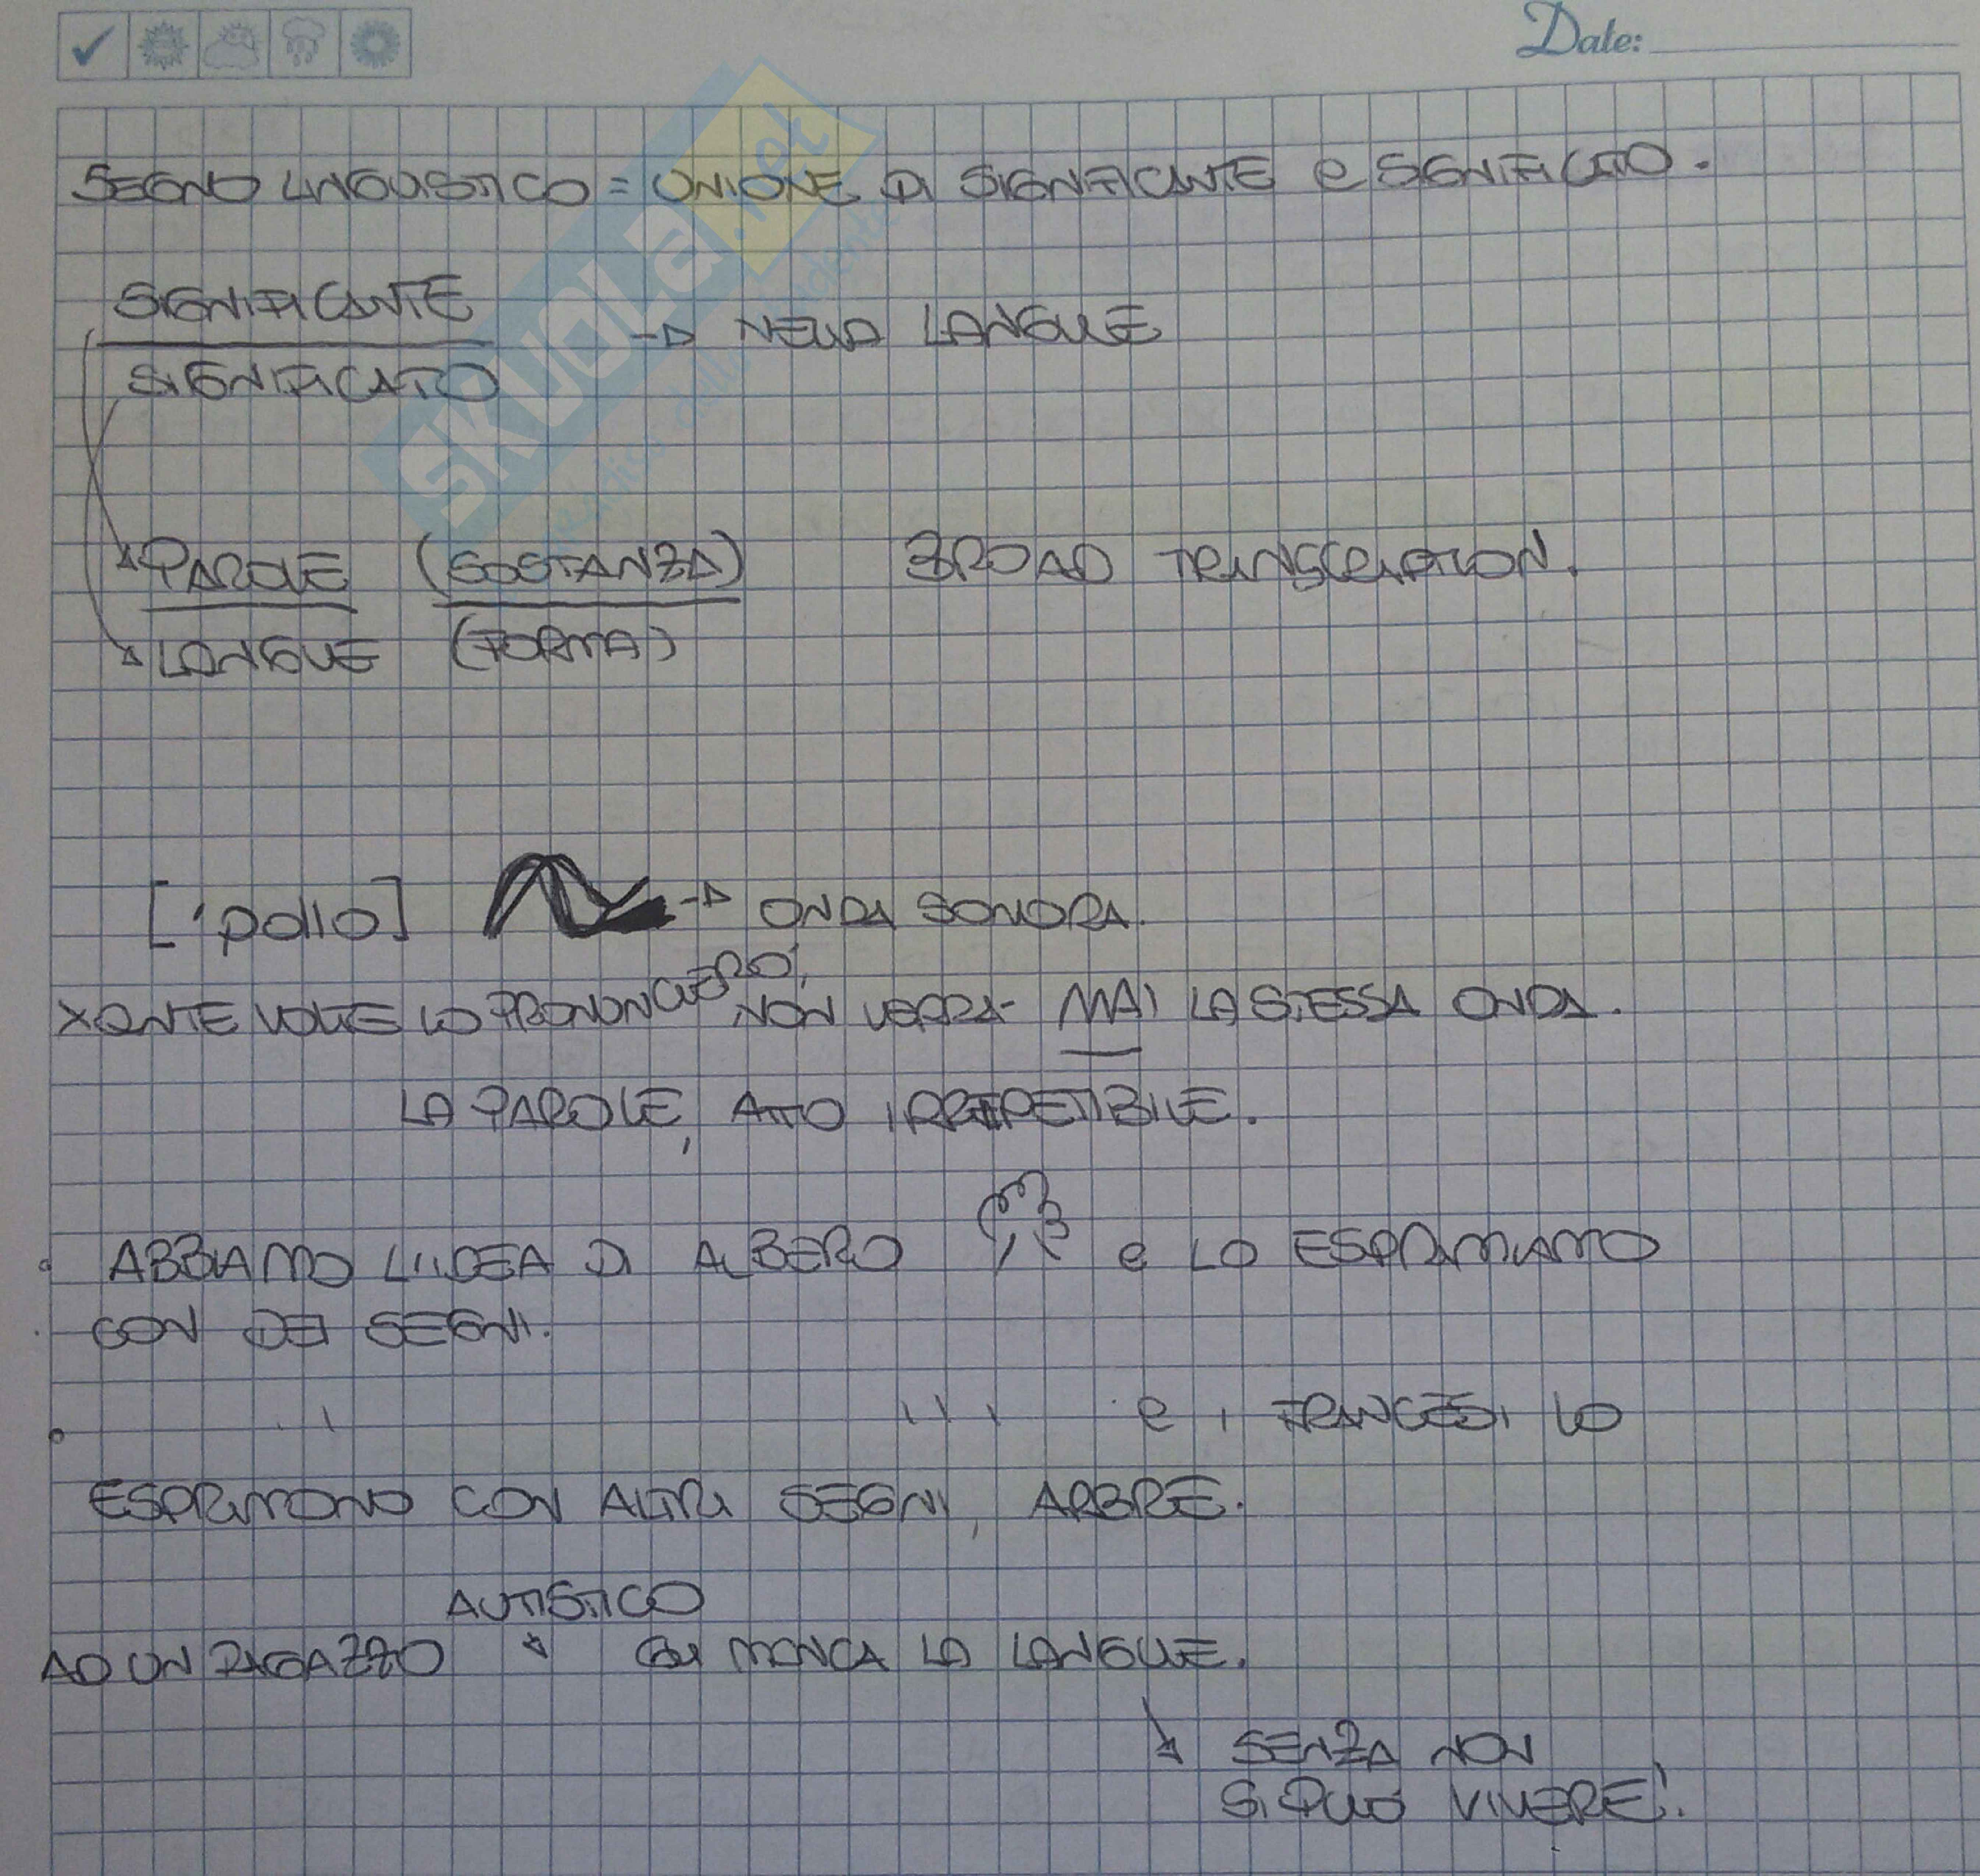 Date:
SEGNO LINGUISTICO = UNIONE DI SIGNIFICANTE e SIGNIFICATO.
SIGNIFICANTE
SIGNIFICATO
→ NELLA LANGUE
PAROLE (SOSTANZA) BROAD TRANSCRIPTION.
LANGUE (FORMA)
['pollo] → ONDA SONORA.
X QNTE VOLTE LO PRONUNCERÒ, NON VERRA MAI LA STESSA ONDA.
LA PAROLE, ATTO IRRIPETIBILE.
ABBIAMO L'IDEA DI ALBERO e LO ESPRIMIAMO
CON DEI SEGNI.
" " e i FRANCESI LO
ESPRIMONO CON ALTRI SEGNI, ARBRE.
AUTISTICO
AD UN RAGAZZO MANCA LA LANGUE.
SENZA NON
SI PUÒ VIVERE!
SKUOLA.net